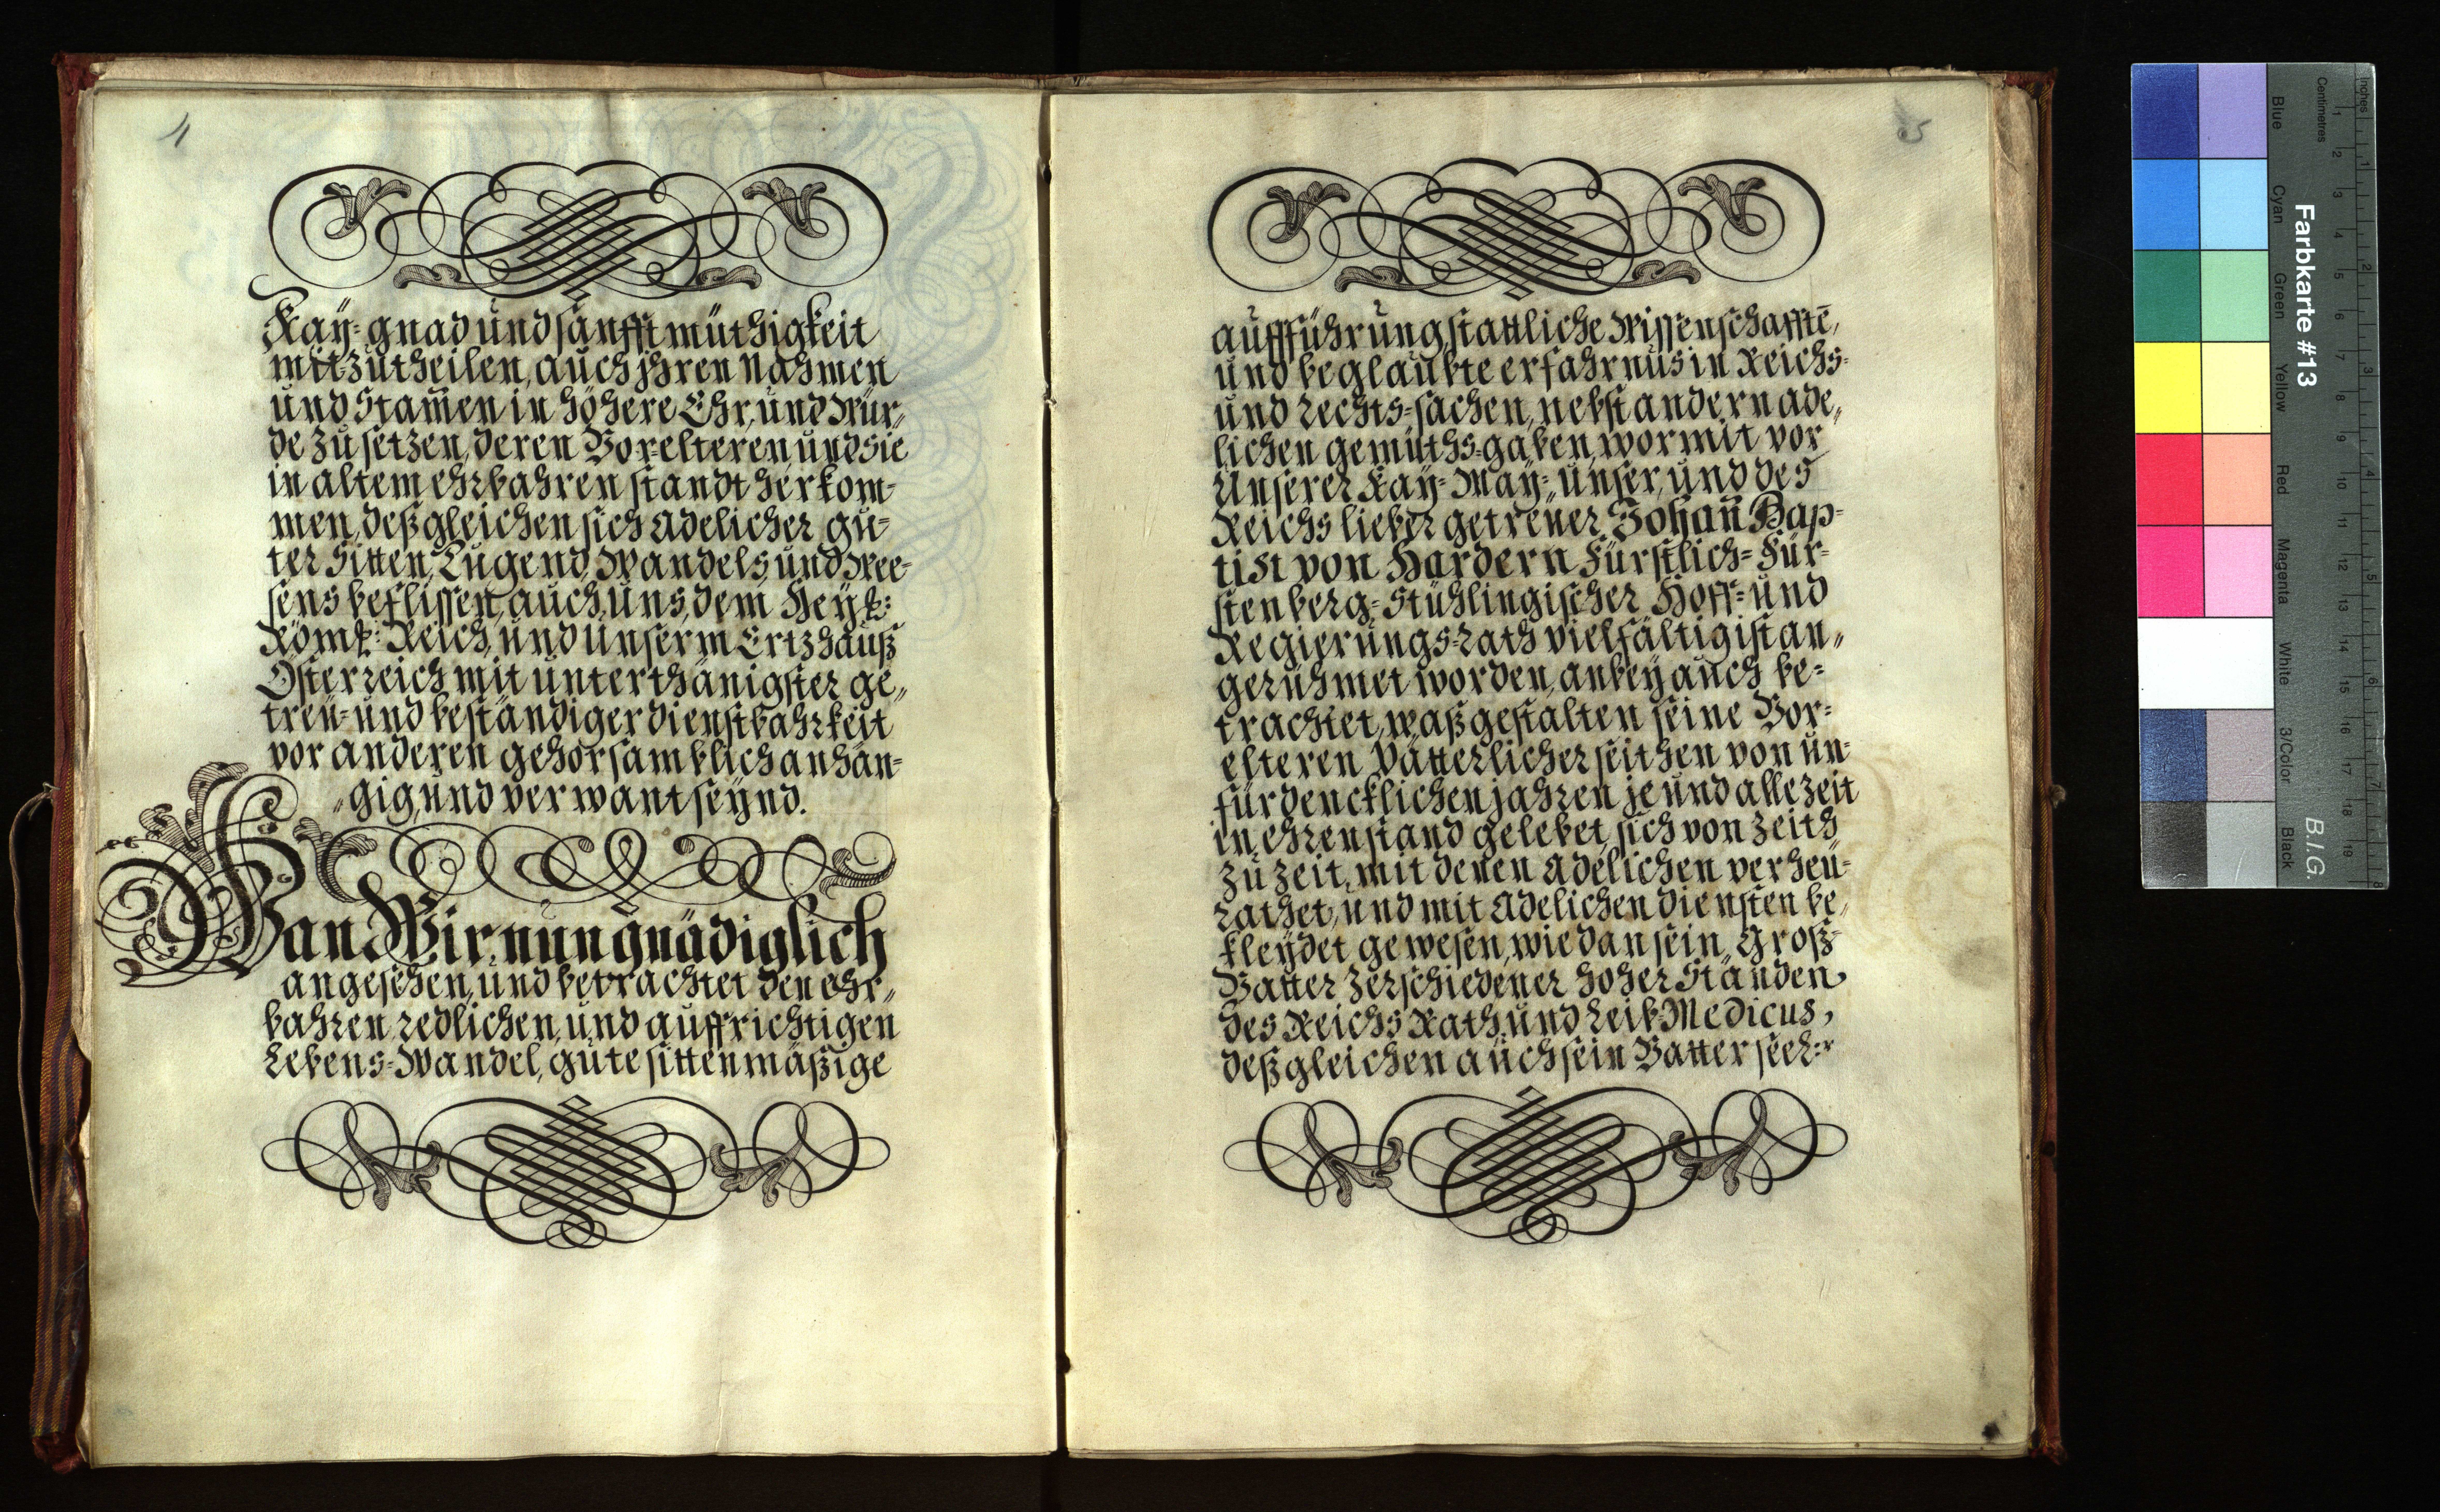 4
Kaÿ= gnad und sänfftmüthigkeit
mitzutheilen, auch jhren Nahmen
und Stam̄en in höhere Ehr, und Wür„
de zu setzen, deren Vor=elteren und sie
in altem ehrbahren standt herkom-
men, deßgleichen sich adelicher gu-
ter Sitten, Tugend, Wandels, und Wee-
sens beflissen, auch, Uns, dem Heÿl:
Röml: Reich, und Unserm Ertzhauß
Österreich mit unterthänigster ge„
treu= und beständiger dienstbahrkeit
vor anderen gehorsamblich anhän=
„gig, und verwant seÿnd.
Wan Wir nun gnädiglich
angesehen, und betrachtet den ehr„
bahren, redlichen, und auffrichtigen
Lebens=Wandel, gute sittenmäßige
5
aufführung, stattliche Wissenschafftē,
und beglaubte erfahrnus in Reichs=
und Rechts=sachen, nebst andern ade„
lichen gemüths=gaben, wormit vor
Unserer Kaÿ= Maÿ=, Unser, und des
Reichs lieber getreüer Johan̄ Bap=
tist von Hardern Fürstlich= Für=
stenberg= Stühlingischer Hoff= und
Regierungs=Rath vielfältig ist an„
gerühmet worden, anbeÿ auch be=
trachtet, waßgestalten seine Vor=
elteren Vätterlicher seithen von un=
fürdencklichen jahren je und allezeit
in ehrenstand gelebet, sich von zeith
zu zeit, mit denen Adelichen verheü=
rathet, und mit Adelichen diensten be„
kleÿdet gewesen, wie dan sein Groß=
Vatter zerschiedener hoher Ständen
des Reichs Rath, und Leib Medicus,
deßgleichen auch sein Vatter seel:r
Farbkarte #13
B.I.G.
Inches
Centimetres
1 2 3 4 5 6 7 8 9 10 11 12 13 14 15 16 17 18 19
1 2 3 4 5 6 7 8
Blue
Cyan
Green
Yellow
Red
Magenta
White
3/Color
Black